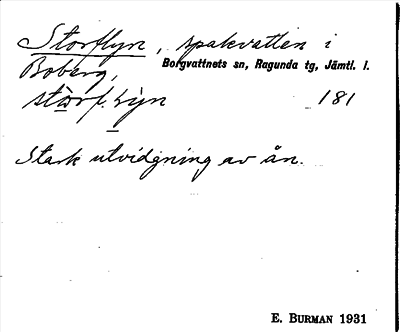 Storflyn, spakvatten i
Boberg,
Borgvattnets sn, Ragunda tg, Jämtl. l.
181
Stark utvidgning av ån.
E. BURMAN 1931